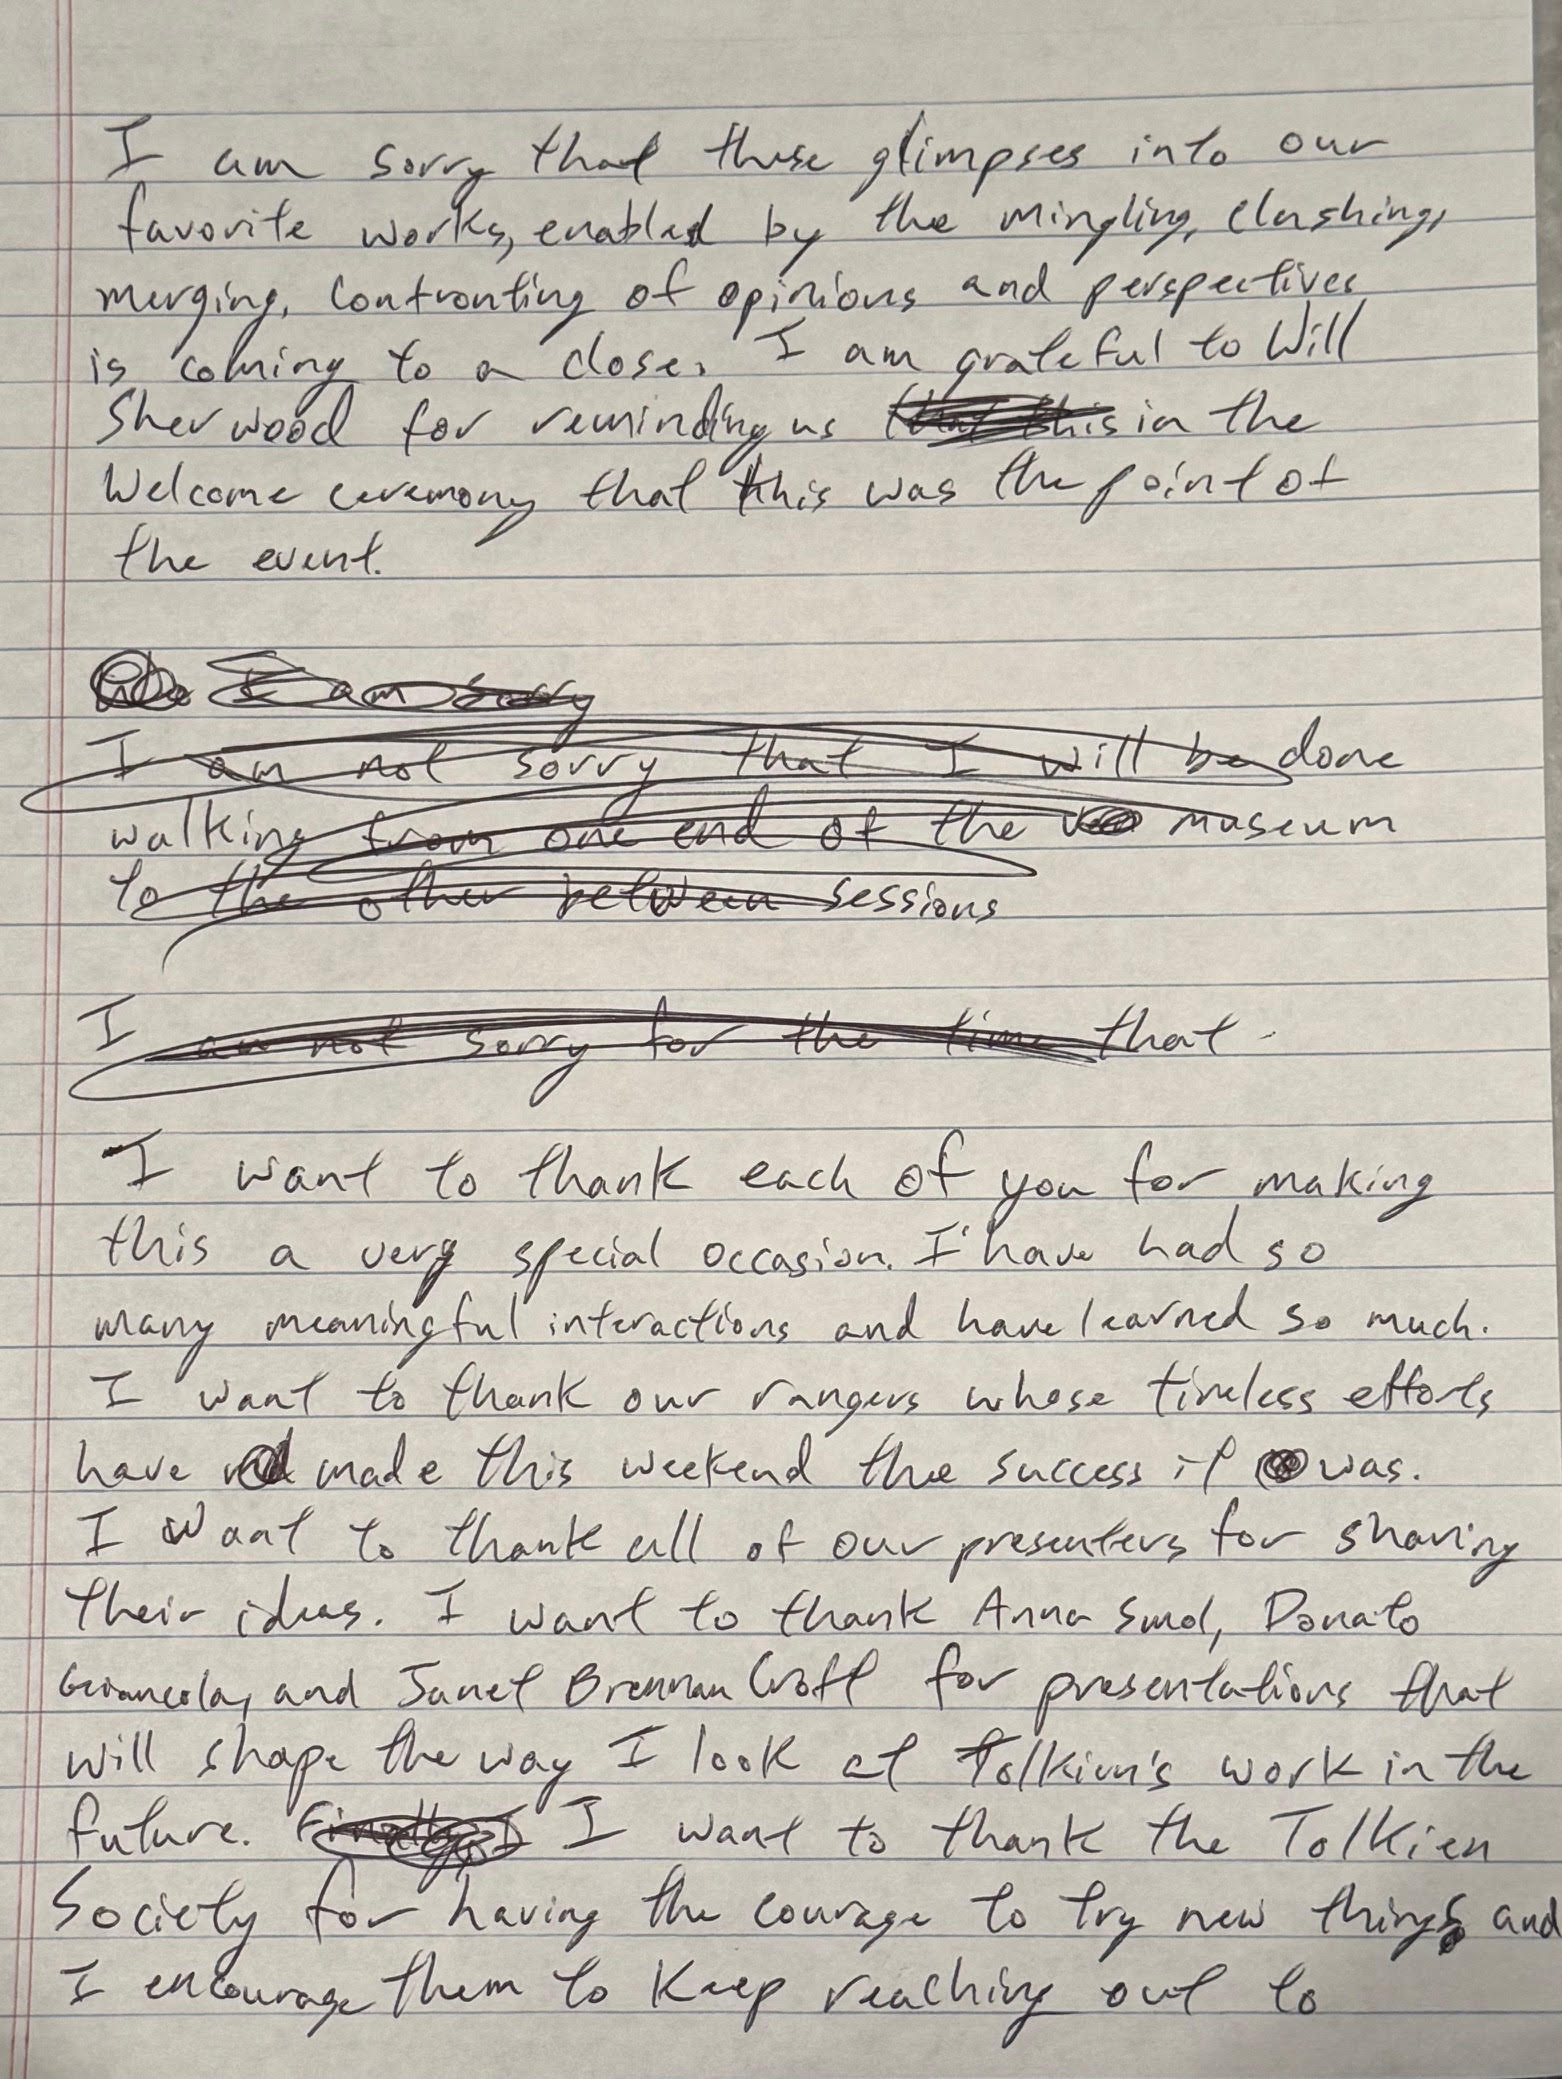 I am sorry that these glimpses into our
favorite works, enabled by the mingling, clashing,
merging, confronting of opinions and perspectives
is coming to a close. I am grateful to Will
Sherwood for reminding us that this in the
Welcome ceremony that this was the point of
the event.
I am sorry
I am not sorry that I will be done
walking from one end of the museum
to the other between sessions
I am not sorry for the time that
I want to thank each of you for making
this a very special occasion. I have had so
many meaningful interactions and have learned so much.
I want to thank our rangers whose tireless efforts
have made this weekend the success it was.
I want to thank all of our presenters for sharing
their ideas. I want to thank Anna Smol, Donato
Giancola, and Janet Brennan Croft for presentations that
will shape the way I look at Tolkien's work in the
future. Finally, I I want to thank the Tolkien
Society for having the courage to try new things and
I encourage them to keep reaching out to